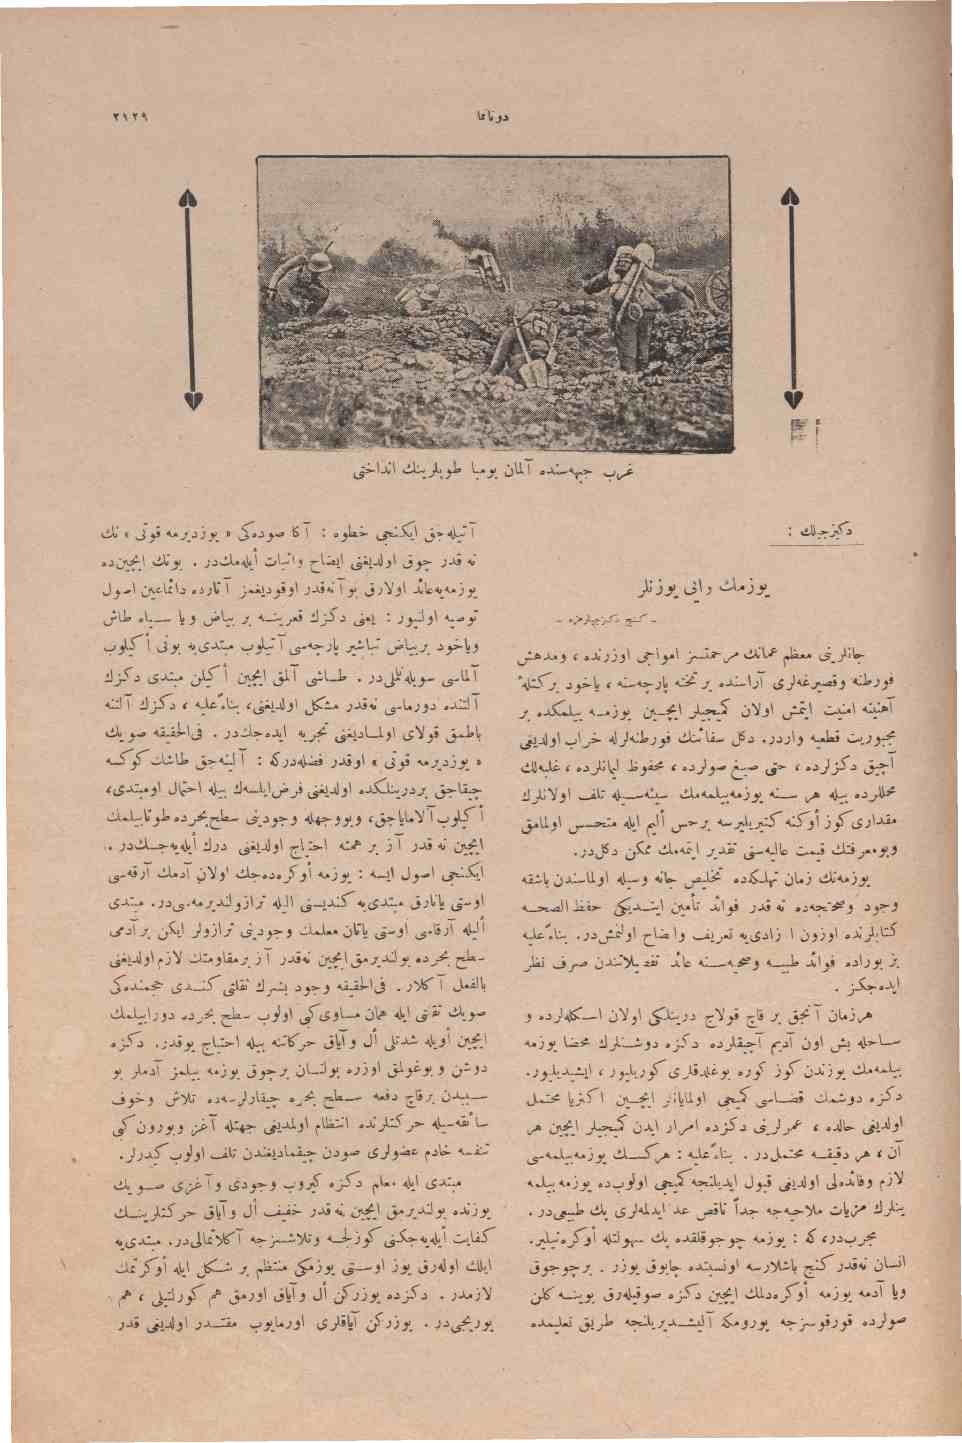 دوناعا
٢١٢٩
غرب جبهه‌سنده آلمان بومبا طوپلرينك انداختى
دكيزجيلك :
يوزمك وايى يوزنلر
ـ كنج دكزجيلرمزه ـ
جانلرينى معظم عمانك مرحمتسز امواجى اوزرنده ، ومدهش
فورطنه وقصيرغه‌لرى آراسنده بر تخته پارچه‌سنه ، ياخود بركتلهٔ
آهنينه امنيت ايتمش اولان كميجيلر ايچــين يوزمــه بيلمكده بر
مجبوريت قطعيه واردر. دكل سفائنك فورطنه‌لرله خراب اولديغى
آچيق دكزلرده ، حتى صيغ صولرده ، محفوظ ليمانلرده ، غلبه‌لك
محللرده بيله هر ســنه يوزمه‌بيلمه‌مك سيئه‌ســيله تلف اولانلرك
مقدارى كوز أوكنه كتيريليرسه برحس أليم ايله متحسس اولمامق
وبومعرفتك قيمت عاليه‌سنى تقدير ايتمه‌مك ممكن دكل‌در.
يوزمه‌نك زمان تهلكه‌ده تخليص جانه وسيله اولماسندن باشقه
وجود وصحتجه‌ده نه قدر فوائد تأمين ايتــديكى حفظ الصحــه
كتابلرنده اوزون ا زادى‌يه تعريف وايضاح اولنمش‌در. بناءً عليه
بز بوراده فوائد طبيــه وصحيه‌ســنه عائد تفصيلاتندن صرف نظر
ايده‌جكز .
هرزمان آنجق بر قاچ قولاج درينلكى اولان اسكله‌لرده و
ســاحله بش اون آديم آچيقلرده دكزه دوشــنلرك محضا يوزمه
بيلمه‌مك يوزندن كوز كوره بوغلدقلرى كوريليور ، ايشيديليور.
دكزه دوشمك قضــاسى كميجى اولمايانلر ايچــين اكثريا محتمل
اولديغى حالده ، عمرلرينى دكزده امرار ايدن كميجيلر ايچين هر
آن ، هر دقيقــه محتمل‌در . بناءً عليه : هركســك يوزمه‌بيلمه‌سى
لازم وفائده‌لى اولديغى قبول ايديلنجه كميجى اولوب‌ده يوزمه بيلمه
ينلرك مزيات ملاحيه‌جه جداً ناقص عد ايدلمه‌لرى پك طبيعى‌در .
مجرب‌در، كه : يوزمه چوجوقلقده پك سهولتله أوكره‌نيلير.
انسان نه‌قدر كنج باشلارسه اونسبتده چابوق يوزر . برچوجوق
ويا آدمه يوزمه أوكره‌دلمك ايچين دكزه صوقيله‌رق بوينــه كلن
صولرده قورقوسزجه يورومكه آليشــديريلنجه طريق تعليمده
آتيله‌جق ايكنجى خطوه : آكا صوده‌كى « يوزديرمه قوتى » نك
نه قدر چوق اولديغنى ايضاح واثبات أيله‌مك‌در . بونك ايچين‌ده
يوزمه‌يه‌عائد اولارق بو آنه‌قدر اوقوديغمز آثارده دائماعين اصول
توصيه اولنيور : يعنى دكزك قعرينــه بر بياض ويا ســياه طاش
وياخود بربياض تباشير پارچه‌سى آتيلوب مبتدى‌يه بونى أكيلوب
آلماسى سويله‌نملى‌در . طــاشى آلمق ايچين أكيلن مبتدى دكزك
آلتنده دورماسى نه‌قدر مشكل اولديغنى، بناءً عليه ، دكزك آلتنه
باطمق قولاى اولمــاديغنى تجربه ايده‌جك‌در . فى‌الحقيقه صويك
« يوزديرمه قوتى » اوقدر فضله‌دركه : آلينه‌جق طاشك كوكســه
چيقاجق بردرينلكده اولديغنى فرض‌ايلسه‌ك بيله احتمال اومبتدى،
أكيلوب آلاماياجق، وبووجهله وجودينى سطح‌بحرده طوتابيلمك
ايچين نه قدر آز بر همته احتياج اولديغنى درك أيله‌يه‌جــك‌در .
ايكنجى اصول ايسه : يوزمه أوكره‌ده‌جك اولان آدمك آرقه‌سى
اوستى ياتارق مبتدى‌يه كنديسنى اليله ترازولنديرمه‌سى‌در. مبتدى
أليله آرقاسى اوستى ياتان معلمك وجودينى ترازولر ايكن برآدمى
سطح بحرده بولنديرمق ايچين نه‌قدر آز برمقاومتك لازم اولديغنى
بالفعل آكلار . فى‌الحقيقه وجود بشرك ثقلتى كنــدى حجمنده‌كى
صويك ثقلتى ايله همان مساوى‌كبى اولوب سطح بحرده دورابيلمك
ايچين أويله شدتلى أل وآياق حركاتنه بيله احتياج يوقدر. دكزه
دوشن و بوغولمق اوزره بولنــان برچوق يوزمه بيلمز آدملر بو
ســبيدن برقاچ دفعه ســطح بحره چيقارلرسه‌ده تلاش وخوف
سائقه‌سيله حركتلرنده انتظام اولمديغى جهتله آغز وبورون كبى
تنفسه خادم عضولرى صودن چيقماديغندن تلف اولوب كيدرلر.
مبتدى ايله معلم دكزه كيروب وجودى وآغزى صــويك
يوزنده بولنديرمق ايچين نه‌قدر خفيف أل وآياق حركتلرينــك
كفايت أيله‌يه‌جكنى كوزلجــه وتلاشسزجه آكلاتمالى‌در. مبتدى‌يه
ايلك اوله‌رق يوز اوســتى يوزمكى منتظم بر شــكل ايله أوكرتمك
لازمدر . دكزده يوزركن أل وآياق اورمق هم كورلتيلى ، هم
يوريجى‌در . يوزركن آياقلرى اورمايوب مقتــدر اولديغى قدر